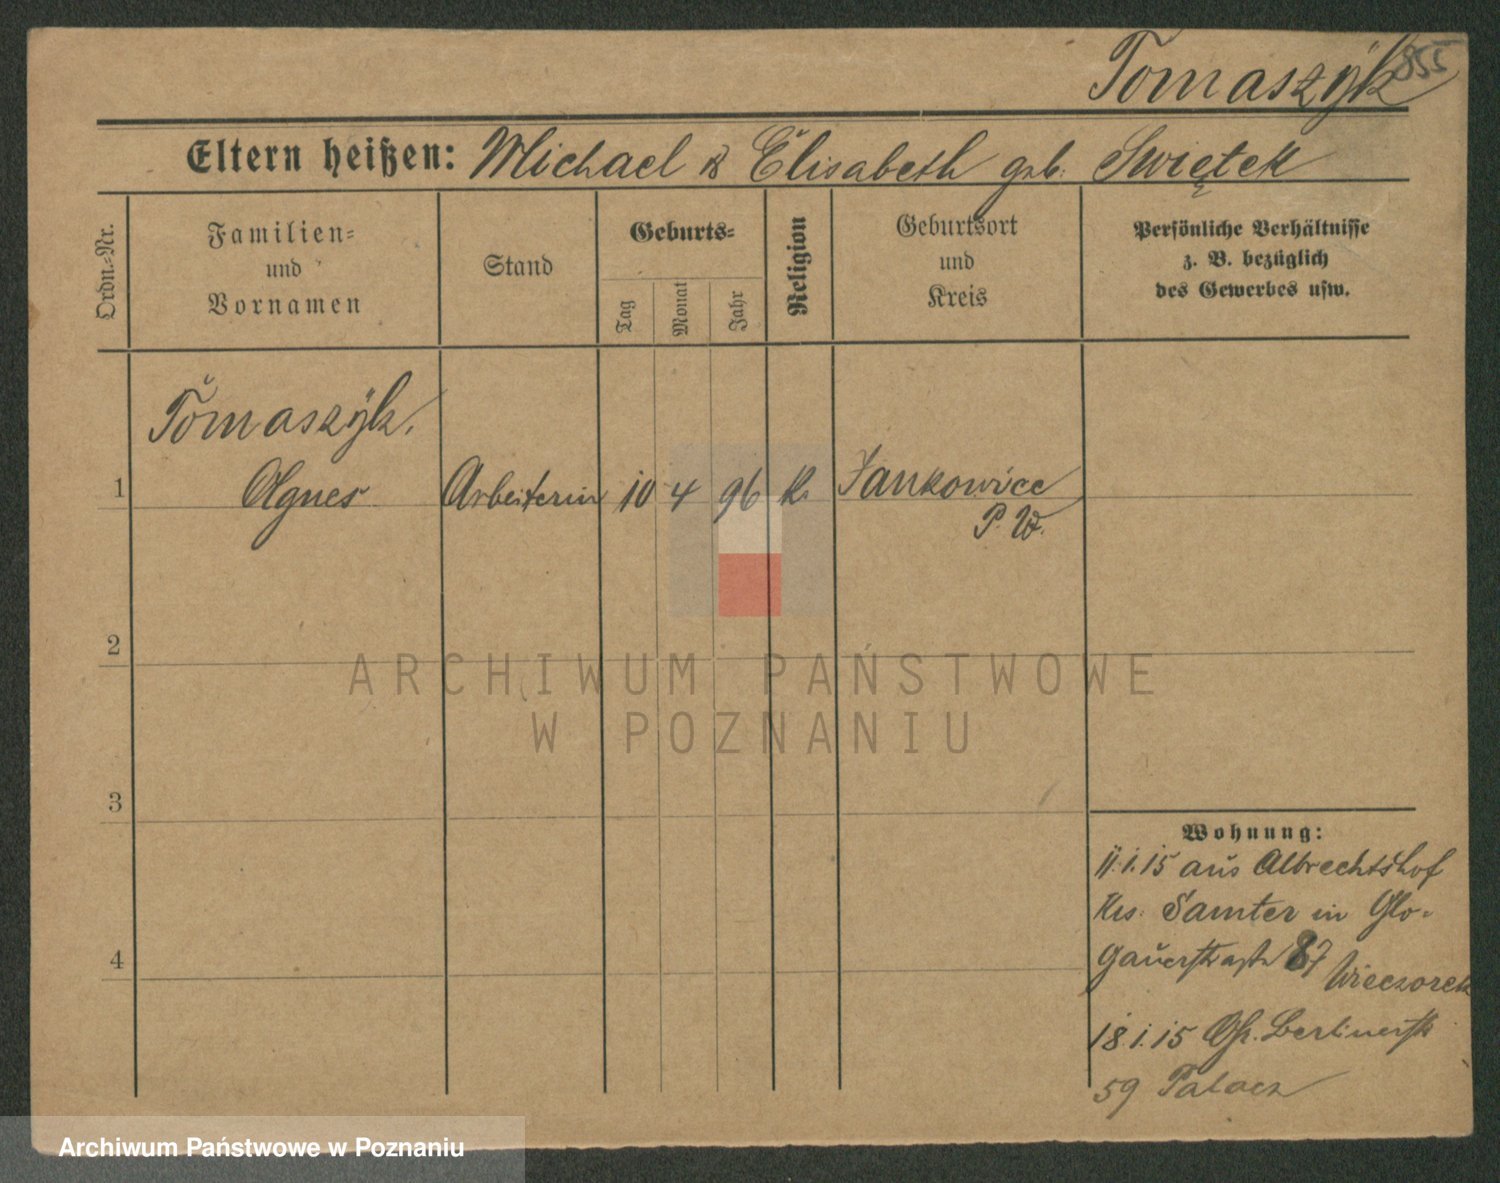 855
Tomaszÿk
Eltern heißen: Michael & Elisabeth geb. Swiętek
Ordn.-Nr.
Familien-
und
Vornamen
Stand
Geburts-
Tag
Monat
Jahr
Religion
Geburtsort
und
Kreis
Persönliche Verhältnisse
z. B. bezüglich
des Gewerbes usw.
Tomaszÿk.
1 Agnes Arbeiterin 10 4 96 k. Jankowice
P. W.
2
ARCHIWUM PAŃSTWOWE
W POZNANIU
3
Wohnung:
11.1.15 aus Albrechtshof
Krs. Samter in Glo-
4
gauerstraße 87
Wieczorek
18.1.15 Gr. Berlinerstr
59 Palacz
Archiwum Państwowe w Poznaniu